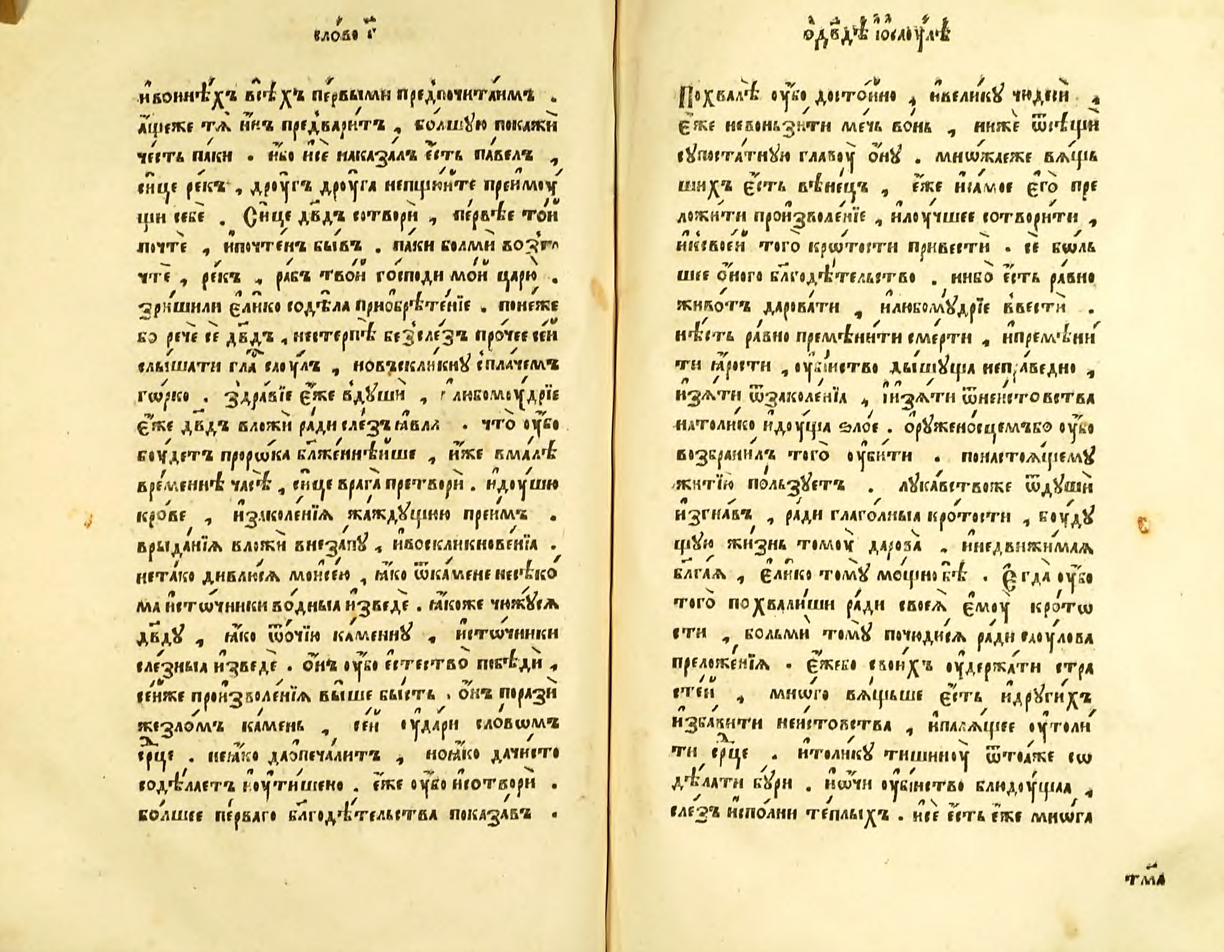 сло́во г҃
и҆воинѣ́хъ всѣ́хъ пе́рвыми предпочита́имъ .
а҆́щеже тѧ̀ и҆́нъ предвари́тъ , бо́лшую покажѝ
че́сть па́ки . и҆́бо и҆сѐ наказа́лъ є҆́сть па́велъ ,
си́це ре́къ , дрꙋ́гъ дрꙋ́га непщꙋ́йте преимꙋ́
щи себѐ . Си́це дв҃дъ сотворѝ , пе́рвѣе то́й
почтѐ , и҆почте́нъ бы́въ . па́ки бо́лми
чтѐ , ре́къ , ра́бъ тво́й го́споди мо́й царю̀ .
зри́шили є҆ли́ко содѣ́ла приобрѣте́нїе . поне́же
бо речѐ сѐ дв҃дъ , нестерпѣ̀ безсле́зъ про́чее се́й
слы́шати гла́ саꙋ́лъ , новъскли́кнꙋ спла́чемъ
го́рко . здра́вїе є҆́же вдꙋшѝ , любомꙋ́дрїе
є҆́же дв҃дъ вложѝ ра́ди сле́зъ ꙗ҆влѧ̀ . что̀ ᲂу҆́бо
бꙋ́детъ проро́ка бл҃же́ннѣйше , и҆́же вма́лѣ
вре́меннѣ часѣ̀ , си́це врага̀ претворѝ . и҆дꙋ́шꙋ
кро́ве , и҆заколе́нїѧ жа́ждꙋщꙋю прее́мъ .
врыда́нїѧ вложѝ внеза́пꙋ , и҆воскликнове́нїѧ .
нета́ко дивлю́сѧ моисе́ю , ꙗ҆́ко ѿка́мене несѣ́ко
ма и҆сто́чники во́дныѧ и҆зведѐ . ꙗ҆́коже чꙋжꙋ́сѧ
дв҃дꙋ , ꙗ҆́ко ѿо́чїю ка́меннꙋ , и҆сто́чники
сле́зныѧ и҆зведѐ . ѻ҆́нъ ᲂу҆́бо є҆стество̀ побѣдѝ ,
се́йже произволе́нїѧ вы́ше бы́сть . ѻ҆́нъ поразѝ
жезло́мъ ка́мень , се́й ᲂу҆да́ри сло́вомъ
ср҃це . неꙗ҆́ко даѡпеча́литъ , ноꙗ҆́ко дачи́сто
содѣ́лаетъ и҆ᲂу҆ти́шено . є҆́же ᲂу҆́бо и҆сотворѝ .
бо́лшее пе́рваго бл҃годѣ́тельства показа́въ .
ѻ҆дв҃дѣ и҆ѡсаꙋ́лѣ
Похвалѣ̀ ᲂу҆́бо досто́йно , и҆вели́кꙋ чюдесѝ ,
є҆́же невоньзи́ти ме́чь во́нь , нижѐ ѿсѣщѝ
сꙋпоста́тнꙋю главꙋ̀ ѻ҆́нꙋ . мно́жаеже вѧ́щь
шихъ є҆́сть вѣне́цъ , є҆́же и҆са́мое є҆го̀ пре
ложи́ти произволе́нїе , и҆лꙋ́чшее сотвори́ти ,
и҆ксвое́й того̀ кро́тости привестѝ . сѐ бѡль
шее ѻ҆́ного бл҃годѣ́тельство . нибо̀ є҆́сть ра́вно
живо́тъ дарова́ти , и҆любомꙋ́дрїе ввестѝ .
нѣ́сть ра́вно премѣни́ти сме́рти , и҆премѣни́
ти ꙗ҆́рости , ᲂу҆бі́йство ды́шꙋща непра́ведно ,
и҆зѧ́ти ѿзаколе́нїѧ , и҆и҆зѧ́ти ѿнеи́стовства
натоли́ко и҆дꙋ́ща ѕло́е . ѻ҆рꙋженосцемъбо ᲂу҆́бо
возбрани́лъ того̀ ᲂу҆би́ти . понастоѧ́щемꙋ
житїю̀ по́льзꙋетъ . лꙋка́вствоже ѿдꙋшѝ
и҆згна́въ , ра́ди глаго́лныѧ кро́тости , бꙋ́дꙋ
щꙋю жи́знь томꙋ̀ дарова̀ . и҆недви́жимаѧ
бл҃га́ѧ , є҆ли́ко томꙋ̀ мо́щно бѣ̀ . Е҆гда̀ ᲂу҆́бо
того̀ похвали́ши ра́ди своеѧ̀ є҆мꙋ̀ кро́тѡ
сти , бо́льми томꙋ̀ почюди́сѧ ра́ди саꙋ́лова
преложе́нїѧ . є҆́жебо свои́хъ ᲂу҆держа́ти стра
сте́й , мно́го вѧ́щьше є҆́сть и҆дрꙋги́хъ
и҆зба́вити неи́стовства , и҆палѧ́щее ᲂу҆толи́
ти ср҃це . и҆толи́кꙋ тишинꙋ̀ ѿто́ѧже со
дѣ́лати бꙋ́ри . и҆ѻ҆́чи ᲂу҆бі́йство блюдꙋ́щаѧ ,
сле́зъ и҆спо́лни те́плыхъ . и҆сѐ є҆́сть є҆́же мнѡ́га
тм҃а